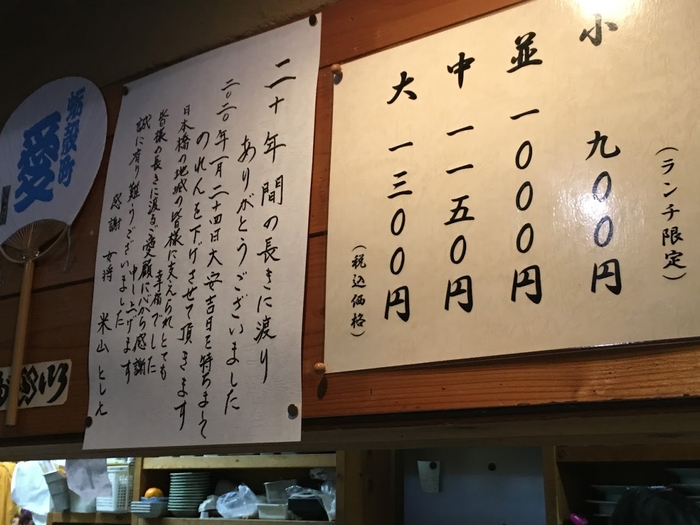 (ランチ限定)
小 九〇〇円
並 一〇〇〇円
中 一一五〇円
大 一三〇〇円
(税込価格)
二十年間の長きに渡り
ありがとうございました
二〇二〇年一月二十四日大安吉日を持ちまして
のれんを下げさせて頂きます
日本橋の地域の皆様に支えられとても
幸福でした
皆様の長きに渡るご愛顧に心から感謝
申し上げます
誠に有り難うございました
感謝 女将 米山 とし
蛎殻町
愛